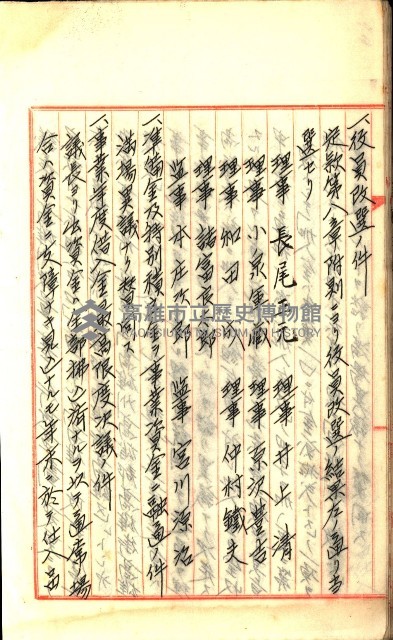 一、役員改選ノ件
定款第八章附則ニヨリ役員改選ノ結果左ノ通リ当
選セリ
理事 長尾 理事 井上清
理事 小泉 理事 京次豊吉
理事 和田 理事 仲村鐵夫
理事 諸富 郎
監事 本庄次郎 監事 宮川源治
一、準備金及特別積 事業資金ニ融通ノ件
満場異議ナク
一、事業年度借入金最高限度決議ノ件
議長ヨリ出資金ノ 払込済ナルヲ以テ通常ノ場
合ハ資金ニ支障ナキ見込ナルモ年末ニ於テ仕入品
高雄市立歷史博物館
KAOHSIUNG MUSEUM OF HISTORY